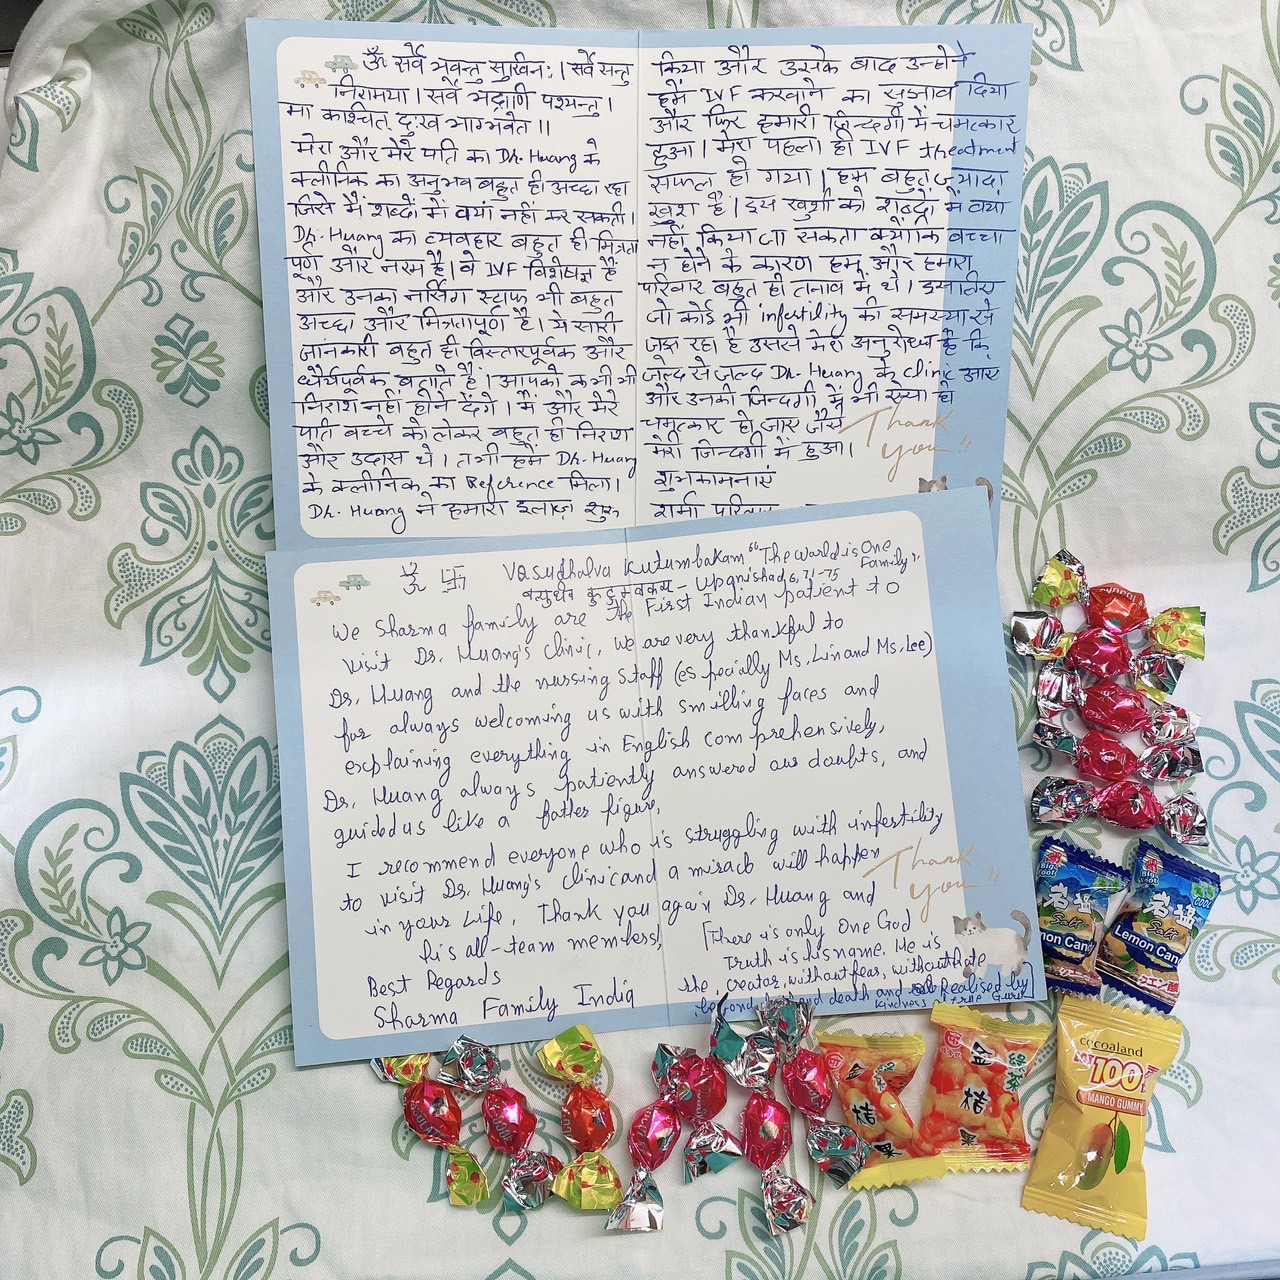 ॐ सर्वे भवन्तु सुखिनः। सर्वे सन्तु
निरामया। सर्वे भद्राणि पश्यन्तु।
मा कश्चित् दुःख भाग्भवेत॥
मेरा और मेरे पति का Dr. Huang के
क्लीनिक का अनुभव बहुत ही अच्छा रहा
जिसे मैं शब्दों में बयां नहीं कर सकती।
Dr. Huang का व्यवहार बहुत ही मित्रता
पूर्ण और नरम है। वे IVF विशेषज्ञ हैं
और उनका नर्सिंग स्टाफ भी बहुत
अच्छा और मित्रतापूर्ण है। ये सारी
जानकारी बहुत ही विस्तारपूर्वक और
धैर्यपूर्वक बताते हैं। आपको कभी भी
निराश नहीं होने देंगे। मैं और मेरे
पति बच्चे को लेकर बहुत ही निराश
और उदास थे। तभी हमें Dr. Huang
के क्लीनिक का Reference मिला।
Dr. Huang ने हमारा इलाज़ शुरू
किया और उसके बाद उन्होंने
हमें IVF करवाने का सुझाव दिया
और फिर हमारी ज़िन्दगी में चमत्कार
हुआ। मेरा पहला ही IVF treatment
सफल हो गया। हम बहुत ज्यादा
खुश है। इस खुशी को शब्दों में बयां
नहीं किया जा सकता क्योंकि बच्चा
न होने के कारण हम और हमारा
परिवार बहुत ही तनाव में थे। इसलिए
जो कोई भी infertility की समस्या से
जूझ रहा है उससे मेरा अनुरोध है कि
जल्द से जल्द Dr. Huang के clinic आए
और उनकी जिन्दगी में भी ऐसा ही
चमत्कार हो जाए जैसे
मेरी जिन्दगी में हुआ।
शुभकामनाएं
शर्मा परिवार
Thank
you"
ॐ 卐 Vasudhaiva Kutumbakam "The world is One
Family"
वसुधैव कुटुम्बकम - Upanishad 6, 71-75
We Sharma family are the First Indian patient to
visit Dr. Huang's clinic, we are very thankful to
Dr. Huang and the nursing staff (especially Ms. Lin and Ms. Lee)
for always welcoming us with smilling faces and
explaining everything in English comprehensively,
Dr. Huang always patiently answered our doubts, and
guided us like a father figure,
I recommend everyone who is struggling with infertility
to visit Dr. Huang's clinic and a miracle will happen
in your life. Thank you again Dr. Huang and
his all-team members,
Best Regards
Sharma Family India
[There is only One God
Truth is his name. He is
the, creator, without fear, without hate
beyond birth and death and Realised by
kindness of true Guru]
Thank
you"
Salt
Lemon Candy
岩塩
COOL
Salt
Lemon Candy
クエン酸
金桔
金桔
cocoaland
100
MANGO GUMMY